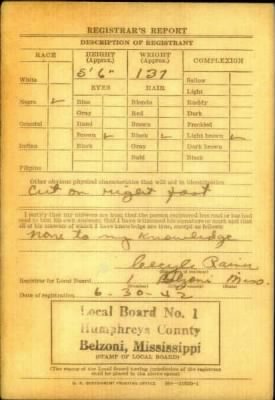 REGISTRAR'S REPORT
DESCRIPTION OF REGISTRANT
RACE HEIGHT (Approx.) WEIGHT (Approx.) COMPLEXION
5' 6" 137
White Sallow
EYES HAIR Light
Negro ✓ Blue Blonde Ruddy
Gray Red Dark
Oriental Hazel Brown Freckled
Brown ✓ Black ✓ Light brown ✓
Indian Black Gray Dark brown
Bald Black
Filipino
Other obvious physical characteristics that will aid in identification
Cut on right foot
I certify that my answers are true; that the person registered has read or has had
read to him his own answers; that I have witnessed his signature or mark and that
all of his answers of which I have knowledge are true, except as follows:
None to my knowledge
Registrar for Local Board 1 Belzoni Miss
Date of registration 6-30-42
Local Board No. 1
Humphreys County
Belzoni, Mississippi
(STAMP OF LOCAL BOARD)
(The stamp of the Local Board having jurisdiction of the registrant
shall be placed in the above space)
U. S. GOVERNMENT PRINTING OFFICE